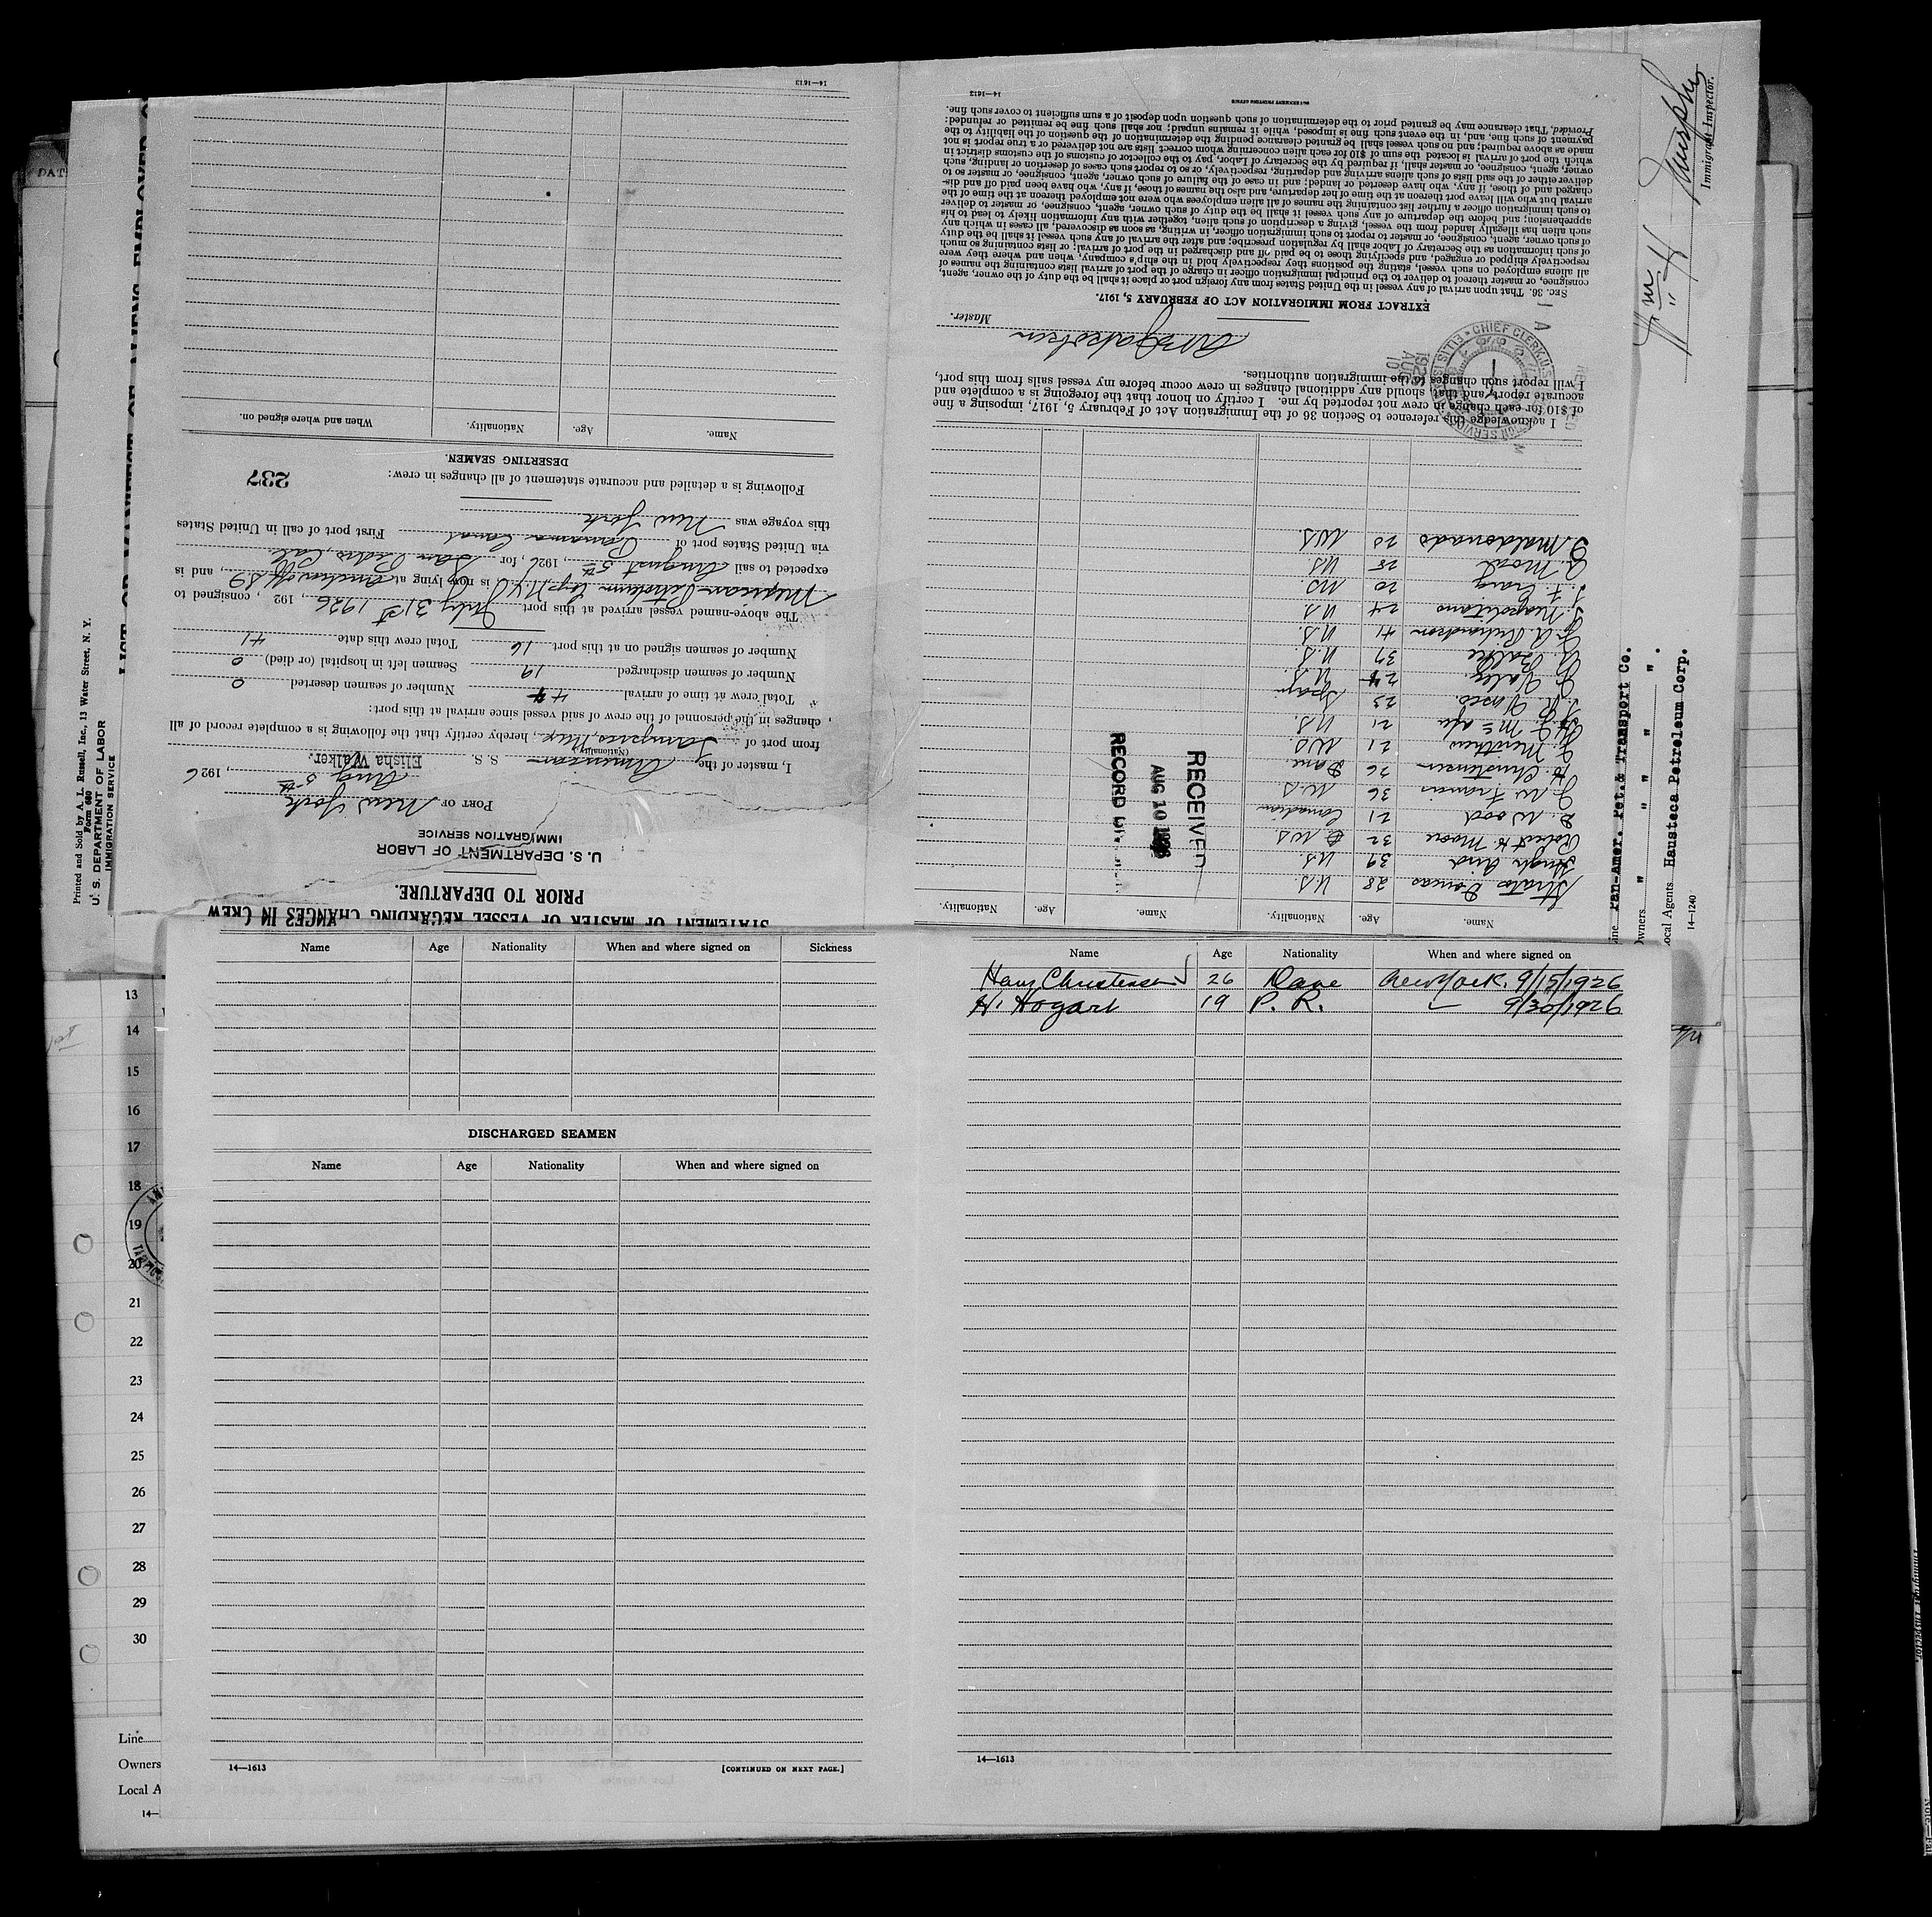 STATEMENT OF MASTER OF VESSEL REGARDING CHANGES IN CREW
PRIOR TO DEPARTURE.
U. S. DEPARTMENT OF LABOR
IMMIGRATION SERVICE
PORT OF New York
Aug 5th, 1926
I, master of the American S. S. Elisha Walker.
(Nationality)
from port of Tampico, Mex, hereby certify that the following is a complete record of all
changes in the personnel of the crew of said vessel since arrival at this port:
Total crew at time of arrival 44 Number of seamen deserted 0
Number of seamen discharged 19 Seamen left in hospital (or died) 0
Number of seamen signed on at this port 16 Total crew this date 41
The above-named vessel arrived at this port July 31st 1926, 192 , consigned to
Mexican Petroleum Corp. N.Y. is now lying at , and is
expected to sail August 5th, 1926, for San Pedro, Cal.
via United States port of Panama Canal First port of call in United States
this voyage was New York
Following is a detailed and accurate statement of all changes in crew:
237
DESERTING SEAMEN.
Name. Age. Nationality. When and where signed on.
14—1613
Name. Age. Nationality. Name. Age. Nationality.
Strato Doucas 28 U.S.
Hugh Aird 39 U.S.
Robert H. Moore 32 U.S.
D. Wood 21 Canadian
J. W. Francis 36 U.S.
H. Christensen 26 Dane
J. Menthew 21 U.S.
21 U.S.
J. R. Vasco 23 Spain
J. Vale 24 U.S.
37 U.S.
G. A. Richardson 41 U.S.
J. Neapolitano 24 U.S.
J. F. Craig 20 U.S.
25 U.S.
D. Maldonado 20 U.S.
RECEIVED
AUG 10 1926
RECORD DIV
I acknowledge this reference to Section 36 of the Immigration Act of February 5, 1917, imposing a fine
of $10 for each change in crew not reported by me. I certify on honor that the foregoing is a complete and
accurate report and that should any additional changes in crew occur before my vessel sails from this port,
I will report such changes to the immigration authorities.
Master.
CHIEF CLERK, U.S.
1926 AUG 10
EXTRACT FROM IMMIGRATION ACT OF FEBRUARY 5, 1917.
SEC. 36. That upon arrival of any vessel in the United States from any foreign port or place it shall be the duty of the owner, agent,
consignee, or master thereof to deliver to the principal immigration officer in charge of the port of arrival lists containing the names of
all aliens employed on such vessel, stating the positions they respectively hold in the ship's company, when and where they were
respectively shipped or engaged, and specifying those to be paid off and discharged in the port of arrival; or lists containing so much
of such information as the Secretary of Labor shall by regulation prescribe; and after the arrival of any such vessel it shall be the duty
of such owner, agent, consignee, or master to report to such immigration officer, in writing, as soon as discovered, all cases in which any
such alien has illegally landed from the vessel, giving a description of such alien, together with any information likely to lead to his
apprehension; and before the departure of any such vessel it shall be the duty of such owner, agent, consignee, or master to deliver
to such immigration officer a further list containing the names of all alien employees who were not employed thereon at the time of the
arrival but who will leave port thereon at the time of her departure, and also the names of those, if any, who have been paid off and dis-
charged and of those, if any, who have deserted or landed; and in case of the failure of such owner, agent, consignee, or master so to
deliver either of the said lists of such aliens arriving and departing, respectively, or so to report such cases of desertion or landing, such
owner, agent, consignee, or master shall, if required by the Secretary of Labor, pay to the collector of customs of the customs district in
which the port of arrival is located the sum of $10 for each alien concerning whom correct lists are not delivered or a true report is not
made as above required; and no such vessel shall be granted clearance pending the determination of the question of the liability to the
payment of such fine, and, in the event such fine is imposed, while it remains unpaid; nor shall such fine be remitted or refunded:
Provided, That clearance may be granted prior to the determination of such question upon deposit of a sum sufficient to cover such fine.
GOVERNMENT PRINTING OFFICE
14—1613
Printed and Sold by A. L. Russell, Inc., 13 Water Street, N. Y.
Form 680
U. S. DEPARTMENT OF LABOR
IMMIGRATION SERVICE
Line Pan-Amer. Pet. & Transport Co.
Owners " " " " " .
Local Agents Hausteca Petroleum Corp.
14—1240
Murphy
Immigrant Inspector.
Name Age Nationality When and where signed on Sickness
DISCHARGED SEAMEN
Name Age Nationality When and where signed on
14—1613 [CONTINUED ON NEXT PAGE.]
Name Age Nationality When and where signed on
Hans Christensen 26 Dane New York. 9/15/1926
H. Hogart 19 P. R. " 9/30/1926
14—1613
13
14
15
16
17
18
19
20
21
22
23
24
25
26
27
28
29
30
Line
Owners
Local A
14—